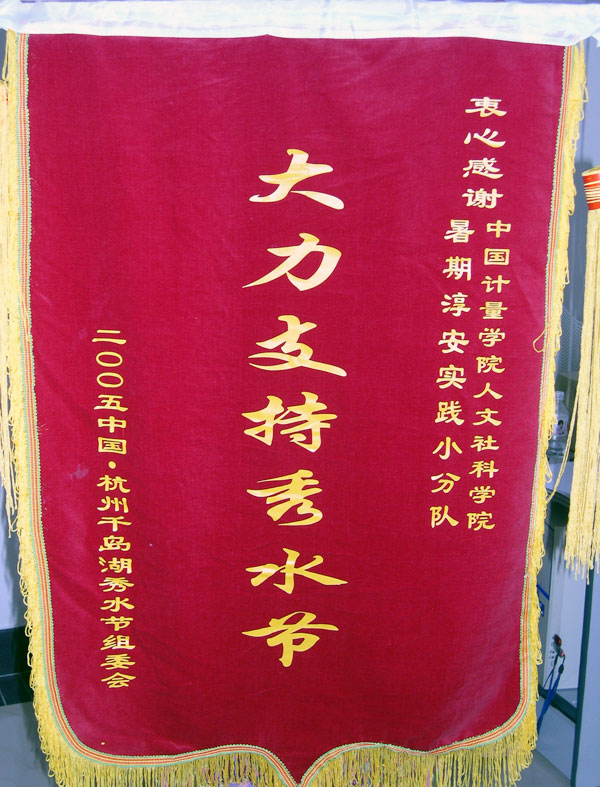 衷心感谢
中国计量学院人文社科学院
暑期淳安实践小分队
大力支持秀水节
二〇〇五中国·杭州千岛湖秀水节组委会